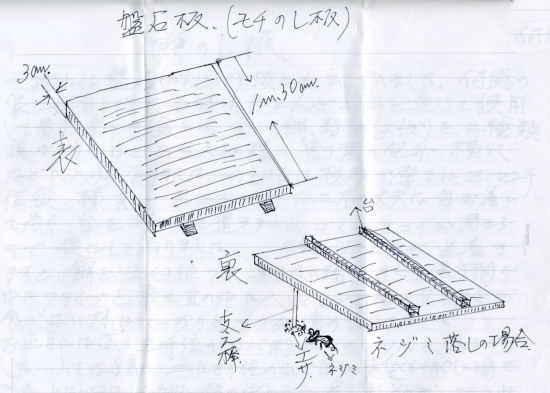 盤石板、(モチのし板)
3cm.
1m.30cm.
表
台
裏
支え棒
エサ
ネヅミ
ネヅミ落しの場合